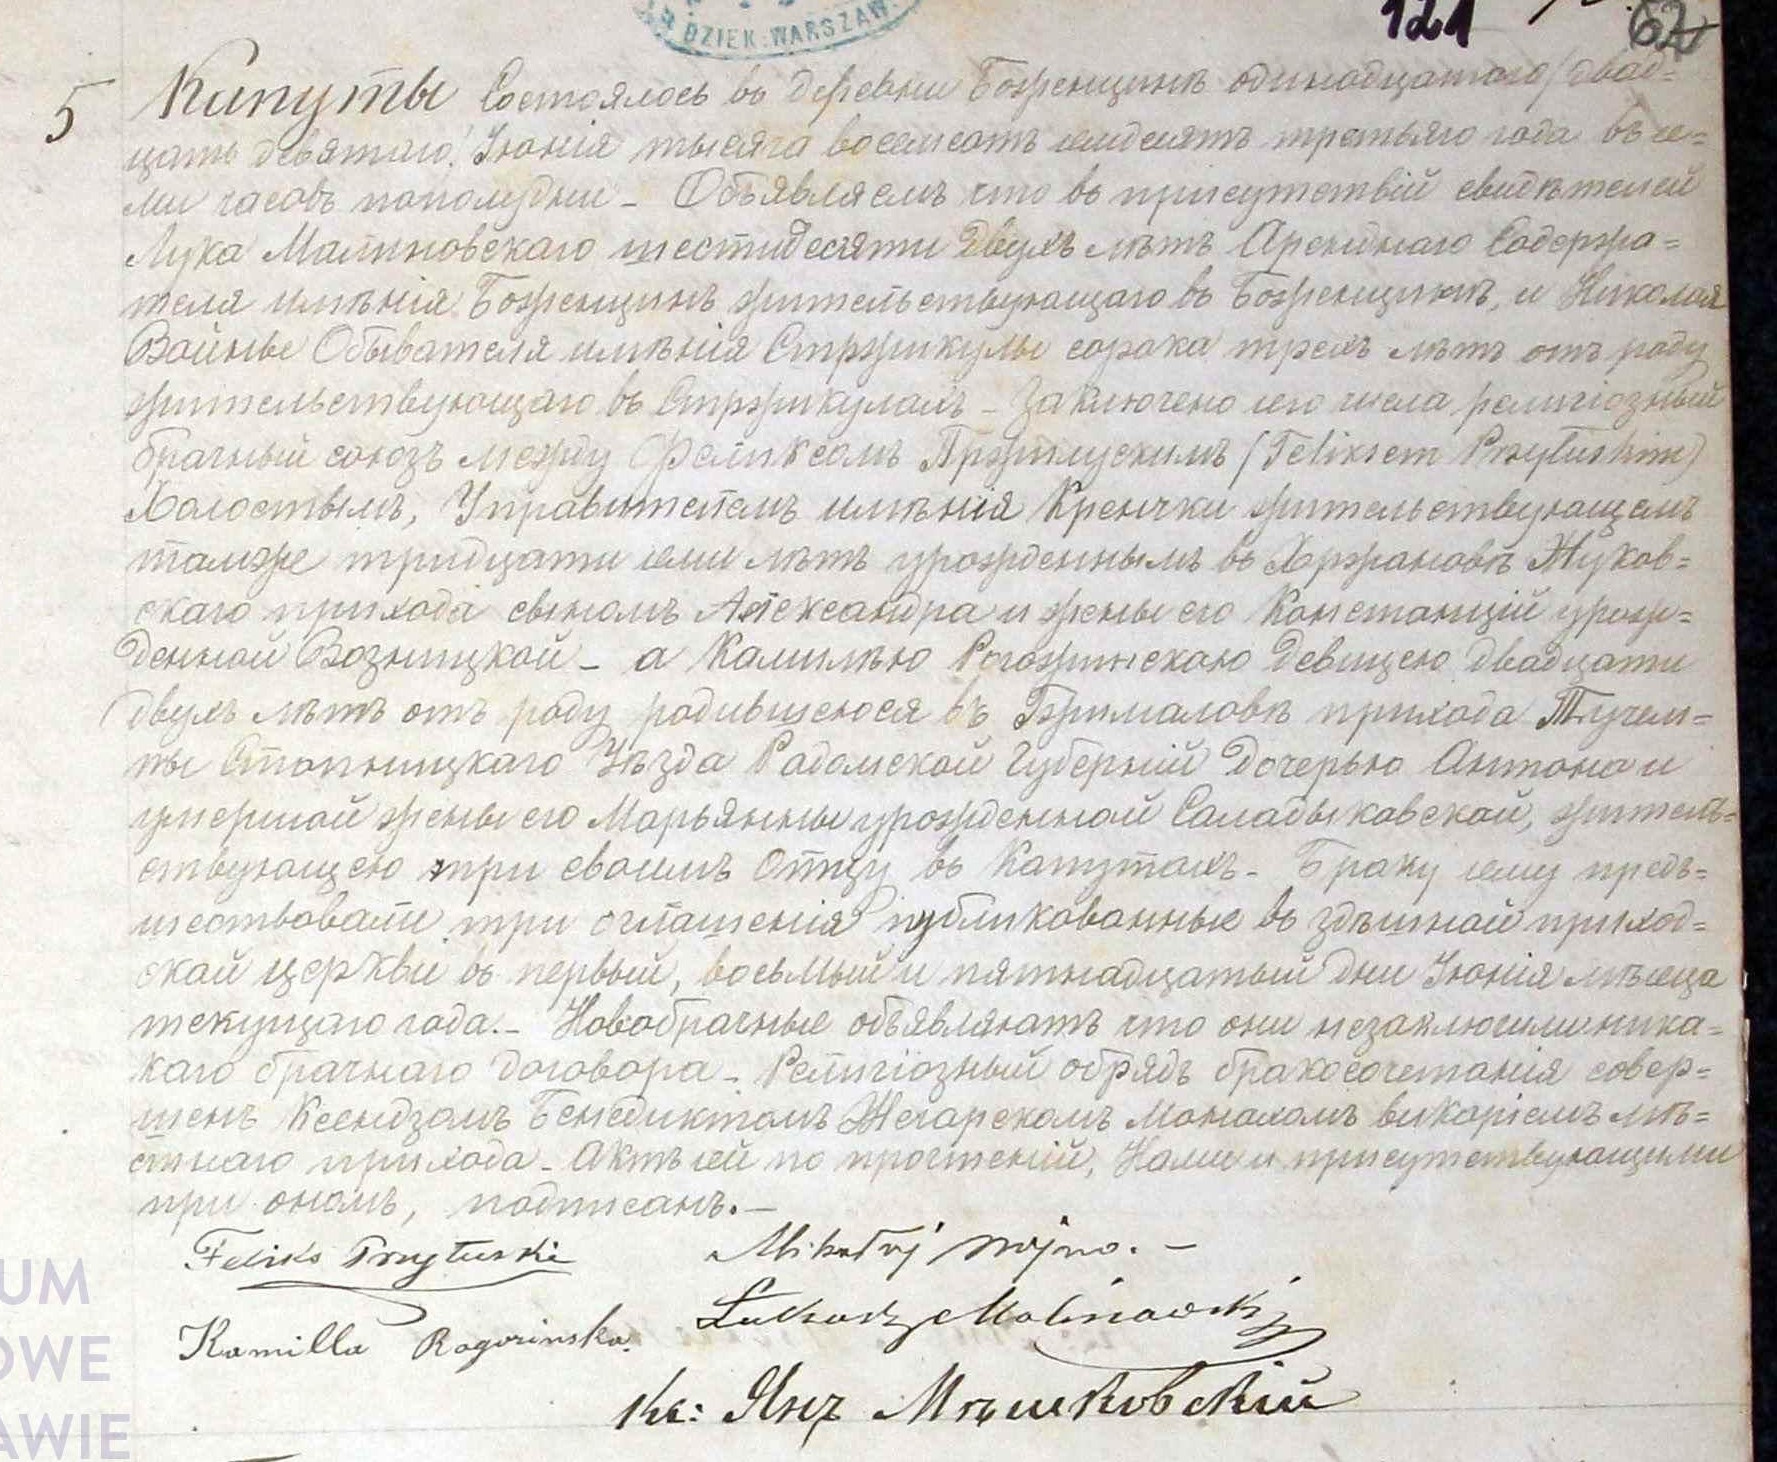 DZIEK. WARSZAW.
121
62
5 Капуты Состоялось въ деревни Боженцинѣ одинадцатого/двад=
цать девятаго/ Іюнія тысяча восемсотъ семдесятъ третьяго года въ се=
ми часовъ пополудни – Объявляемъ что въ присутствій свидѣтелей
Лука Малиновскаго шестидесяти двухъ лѣтъ Аренднаго Содержа=
теля имѣнія Боженцинъ жительствующаго въ Боженцинѣ, и Николая
Войны Обывателя имѣнія Стржикулы сорока трехъ лѣтъ отъ роду
жительствующаго въ Стржикулахъ – Заключено сего числа религіозный
брачный союзъ между Феликсомъ Пржилускимъ (Feliksem Przyłuskim)
Холостымъ, Управителемъ имѣнія Кренчки жительствующемъ
тамже тридцати семи лѣтъ урожденнымъ въ Хржановѣ Жуков=
скаго прихода сыномъ Александра и жены его Констанцій урож=
денной Возницкой – а Камилѣю Рогожинскаю Девицею двадцати
двухъ лѣтъ отъ роду родившеюся въ Гржималовѣ прихода Тучем=
пы Стопницкаго Уѣзда Радомской Губерній Дочерью Антона и
умершой жены его Марьянны урожденной Саладыковской, житель=
ствующею при своимъ Отцу въ Капутахъ – Браку сему предъ=
шествовали три оглашенія публикованные въ здѣшной приход=
ской церкви въ первый, восьмый и пятнадцатый дни Іюнія мѣсяца
текущаго года. – Новобрачные объявляютъ что они незаключили ника=
каго брачнаго договора – Религіозный обрядъ бракосочетанія совер=
шенъ Ксендзомъ Бенедиктомъ Жегарскомъ Монахомъ викаріемъ мѣ=
стнаго прихода – Актъ сей по прочтеній, Нами и присутствующими
при ономъ, подписанъ. –
Feliks Przyłuski Mikołaj Wojno. –
Kamilla Rogozinska. Łukasz Malinowski
Кс: Янъ Мѣшковскій
UM
OWE
AWIE